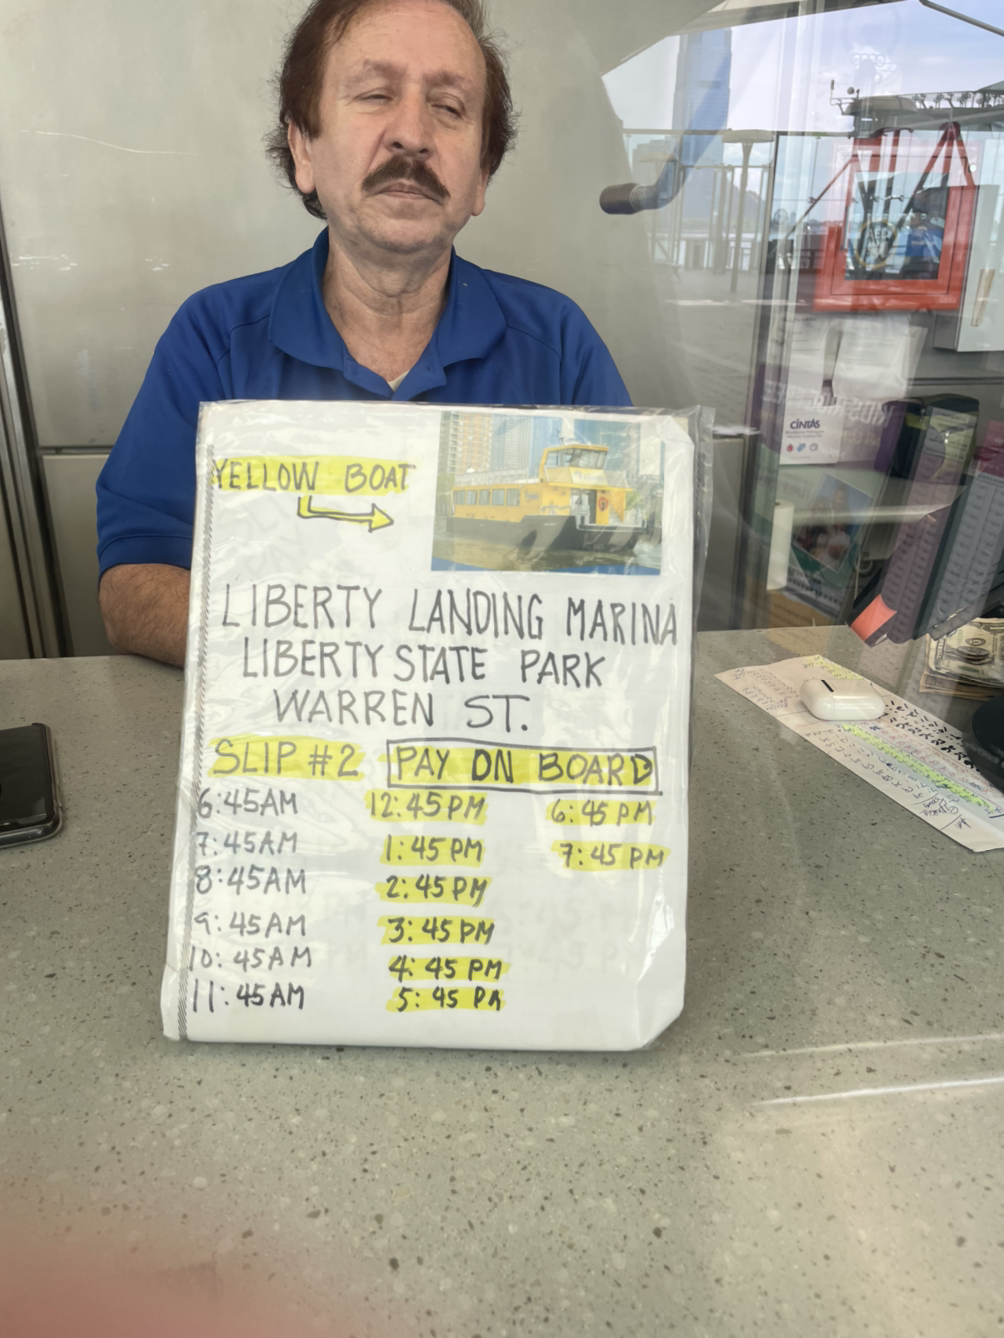 YELLOW BOAT
LIBERTY LANDING MARINA
LIBERTY STATE PARK
WARREN ST.
SLIP #2 PAY ON BOARD
6:45AM 12:45 PM 6:45 PM
7:45AM 1:45 PM 7:45 PM
8:45AM 2:45 PM
9:45AM 3:45 PM
10:45AM 4:45 PM
11:45AM 5:45 PM
CINTAS